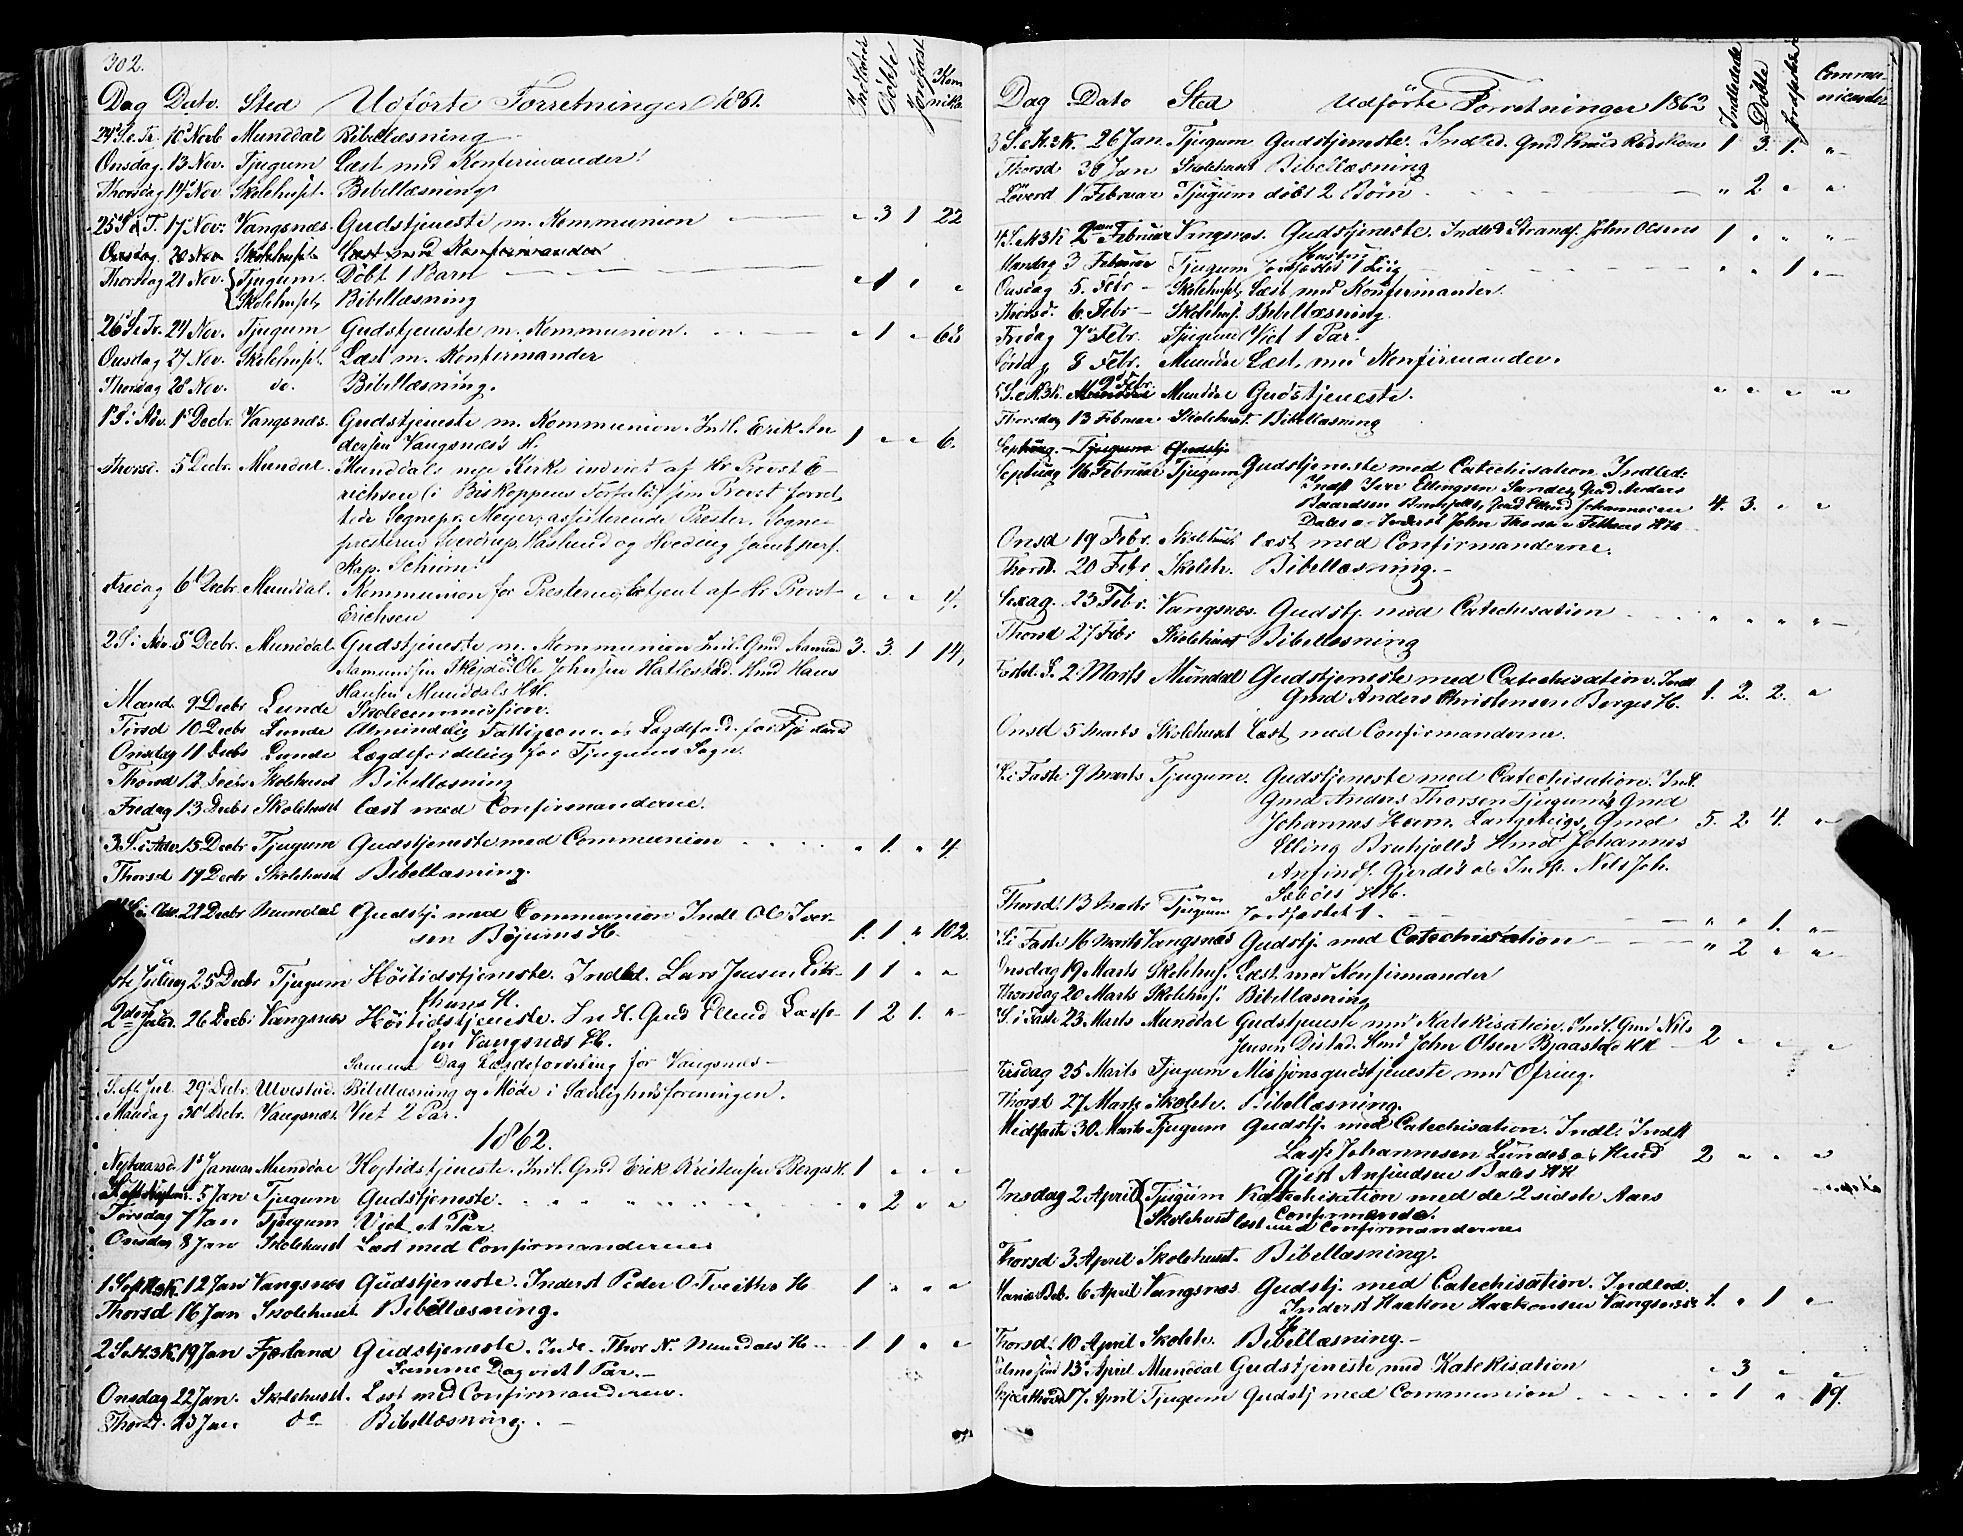 302.
Dag Dato. Sted Udførte Forretninger 1861. Indledede Døbte Jordfæst. Kommunik.
24 S. e. Tr. 10 Novb Munddal Bibellæsning
Onsdag 13 Nov. Tjugum Læst med Konfirmander
Thorsdag 14 Nov Skolehuset. Bibellæsning
25 S. e. T. 17 Nov. Vangsnæs. Gudstjeneste m. Kommunion " 3 1 22
Onsdag 20 Nov Skolehuset Læst med Konfirmander
Thorsdag 21 Nov. Tjugum. Døbt 1 Barn " 1 " "
Skolehuset, Bibellæsning
26 S. e. Tr. 24 Nov. Tjugum Gudstjeneste m. Kommunion. " 1 " 68
Onsdag 27 Nov. Skolehuset. Læst m. Konfirmander
Thorsdag 28 Nov. do. Bibellæsning.
1 S. i Adv. 1 Decbr. Vangsnæs. Gudstjeneste m. Kommunion. Indl. Erik An
dersen Vangsnæs's H. 1 " " 6.
Thorsd. 5 Decbr. Mundal. Munddals nye Kirke indviet af Hr Provst E-
richsen (i Biskoppens Forfald) sim Provst forret,
tede Sognepr. Meyer, assisterende Prester. Sogne-
presterne Sverdrup, Haslund og Hvoding samt pers.
Kap. Schiim.
Fredag 6 Decbr. Munddal. Kommunion for Presterne, betjent af Hr Provst " " " 4.
Erichsen
2 S. i Adv. 5 Decbr. Munddal. Gudstjeneste m. Kommunion Indl. Gmd Aamund 3. 3. 1 14,
Aamundsen Skeidsøl Ole Johnsen Hatlestad. Hmd Hans
Hansen Munddals HH.
Mand. 9 Decbr Lunde Skolecommission.
Tirsd 10 Decbr Lunde Almindelig Fattigcom. og Lægdford. for Fjærland
Onsdag 11 Decbr Lunde Lægdsfordeling for Tjugums Sogn.
Thorsd 12 Decbr Skolehuset Bibellæsning
Fredag 13 Decbr Skolehuset læst med Confirmanderne.
3 S. i Adv 15 Decbr Tjugum Gudstjeneste med Communion " 1. " 4
Thorsd 19 Decbr Skolehuset Bibellæsning.
S. i Adv. 22 Decbr Mundal Gudstj. med Communion Indl. Ole Iver-
sen Bøjums H. 1. 1 " 102.
Juledag 25 Decbr Tjugum Høitidstjeneste. Indled. Lars Jensen Eik- 1 1 " "
thuns H.
2den Juled. 26 Decbr Vangsnæs Høitidstjeneste. Indl. Gmd Ellend Lasse- 1 2 1. "
sen Vangsnæs H.
Samme Dag Lægdefordeling for Vangsnæs
S. eft. Jul. 29 Decbr. Ulvestad. Bibellæsning og Møde i Sædelighedsforeningen.
Mandag 30 Decbr. Vangsnæs Viet 2 Par.
1862.
Nytaarsd. 1 Januar Munddal Højtidstjeneste. Indl. Gmd Erik Kristensen Berges H. 1 " " "
S. eft. Nytaar. 5 Jan Tjugum Gudstjeneste. " 2 " "
Tirsdag 7 Jan Tjugum Viet et Par
Onsdag 8 Jan Skolehuset Læst med Confirmanderne
1 S. eft. H3K. 12 Jan Vangsnæs Gudstjeneste. Inderst Peder O. Tveithes H 1 " " "
Thorsd 16 Jan Skolehuset Bibellæsning.
2 S. e. H3K. 19 Jan Fjærland Gudstjeneste. Indl. Thor N. Mundals H 1 1 " "
Samme Dag viet 1 Par.
Onsdag 22 Jan. Skolehuset. Læst med Confirmanderne.
Thorsd. 23 Jan. do Bibellæsning.
Dag Dato Sted Udførte Forretninger 1862 Indledede Døbte Jordfæstede Communicanter
3 S. e. H3K. 26 Jan. Tjugum Gudstjeneste. Indled. Gmd Knud 1 3. 1. "
Thorsd 30 Jan Skolehuset Bibellæsning
Løverd 1 Februar Tjugum døbt 2 Børn " 2 " "
4 S. e. H3K 2den Februar Vangsnæs. Gudstjeneste. Indled Strands. John Olsens 1 " " "
Hustru
Mandag 3 Februar Tjugum Jordfæstet 1 Liig " " 1 "
Onsdag 5. Febr - Skolehuset, Læst med Konfirmander.
Thorsd. 6. Febr - Skolehus. Bibellæsning.
Fredag 7 Febr. Tjugum Viet 1 Par.
Lørdag 8 Febr. Munddal Læst med Konfirmander.
5 S. e. H3K. 9 Febr. Munddal Gudstjeneste. " " " "
Thorsdag 13 Februar Skolehuset. Bibellæsning
Septuag. Tjugum Gudstj.
Septuag 16 Februar Tjugum Gudstjeneste med Catechisation Indled:
Indst Iver Ellingsen Sandes, Gmd Anders
Baardsen Bruhjells, Gmd Ellend Johannesen 4. 3. " "
Dales og Inderst John HHr
Onsd 19 Febr. Skolehuset læst med Confirmanderne.
Thorsd. 20 Febr Skoleh. Bibellæsning.
Sexag. 23 Febr. Vangsnæs. Gudstj. med Catechisation " " " "
Thorsd 27 Febr Skolehuset Bibellæsning
Fastel. S. 2 Marts Mundal Gudstjeneste med Catechisation. Indl
Gmd Anders Christensen Berges H. 1. 2. 2. "
Onsd 5 Marts Skolehuset Læst med Confirmanderne.
S. i Faste 9 Marts Tjugum. Gudstjeneste med Catechisation. Indl.
Gmd Anders Thorsen Tjugum's Gmd
Johannes Herm. Langeteigs, Gmd 5. 2 4. "
Elling Bruhjell's Hmd Johannes
Anfinds. Gjerde's og Indst. Nils Joh.
Sebøes HH.
Thorsd. 13 Marts Tjugum Jordfæstet 1. " " 1. "
S. i Faste 16 Marts Vangsnæs Gudstj. med Catechisation " 2 " "
Onsdag 19 Marts Skolehus. Læst med Konfirmander
Thorsdag 20 Marts Skolehus. Bibellæsning
S. i Faste 23 Marts Munddal Gudstjeneste med Katekisation. Indl. Gmd Nils
Jensen Distad. Hmd John Olsen Bjaastad HH 2 " " "
Tirsdag 25 Marts Tjugum Missionsgudstjeneste med Ofring.
Thorsd 27 Marts Skoleh. Bibellæsning.
Midfaste 30. Marts Tjugum Gudstj. med Catechisation. Indl. Indst
Lasse Johannesen Lundes og Hmd 2 " " "
Gjert Anfindsen Bales HH
Onsdag 2 April Tjugum Katechisation med de 2 sidste Aars
Confirmander.
Skolehuset læst med Confirmanderne
Thorsd 3 April Skolehuset. Bibellæsning.
Mariæ Beb. 6 April Vangsnæs Gudstj. med Catechisation. Indled.
Inderst Haakon Haakonsen Vangsnæs 1. " 1 "
H.
Thorsd. 10 April Skoleh. Bibellæsning.
Palmesønd 13 April Munddal Gudstjeneste med Katekisation " 3 " "
Skjærthorsd 17 April Tjugum Gudstj med Communion " 1 " 19.